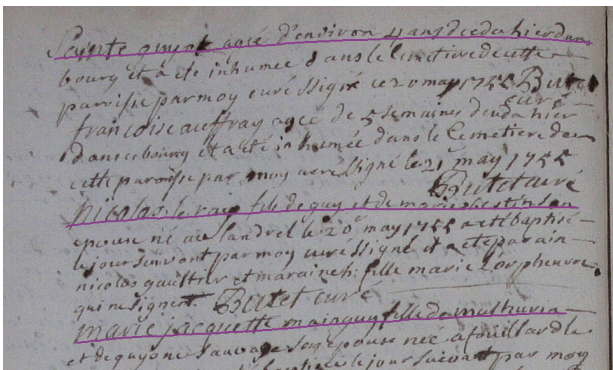 agée d'environ 4 ans deceda hier dans
bourg et a ete inhumée dans le cimetiere de cette
paroisse par moy curé ssigné ce 20 may 1755 Butet
curé
francoise auffray agée de 5 semaines deceda hier
dans ce bourg et a ete inhumée dans le Cemetiere de
cette paroisse par moy curé ssigné le 21 may 1755
Butet curé
Nicolas le fils de guy et de marie
epouse né au landrel le 20 may 1755 a eté baptisé
le jour suivant par moy curé ssigné et a ete parain
nicolas gaultier et maraine h: fille marie
qui ne signent Butet curé
marie jacquette mainguy fille de mathurin
et de guyone sauvage son epouse née a fouillard le
le jour suivant par moy